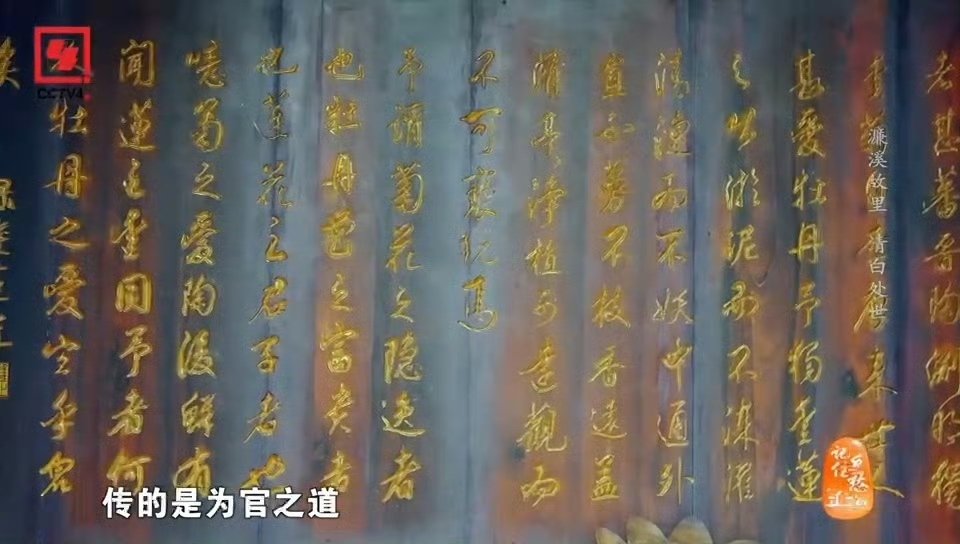 CCTV4
者甚蕃晋陶渊明獨
来世人
甚愛牡丹予獨爱蓮
之出淤泥而不染濯
清漣而不妖中通外
直不蔓不枝香遠益
清亭净植可遠觀而
不可褻玩焉
予謂菊花之隐逸者
也牡丹花之富贵者
也蓮花之君子者也
噫菊之愛陶後鲜有
闻蓮之爱同予者何
牡丹之愛宜乎众
矣
濂溪故里 清白处世
记住乡愁
传的是为官之道